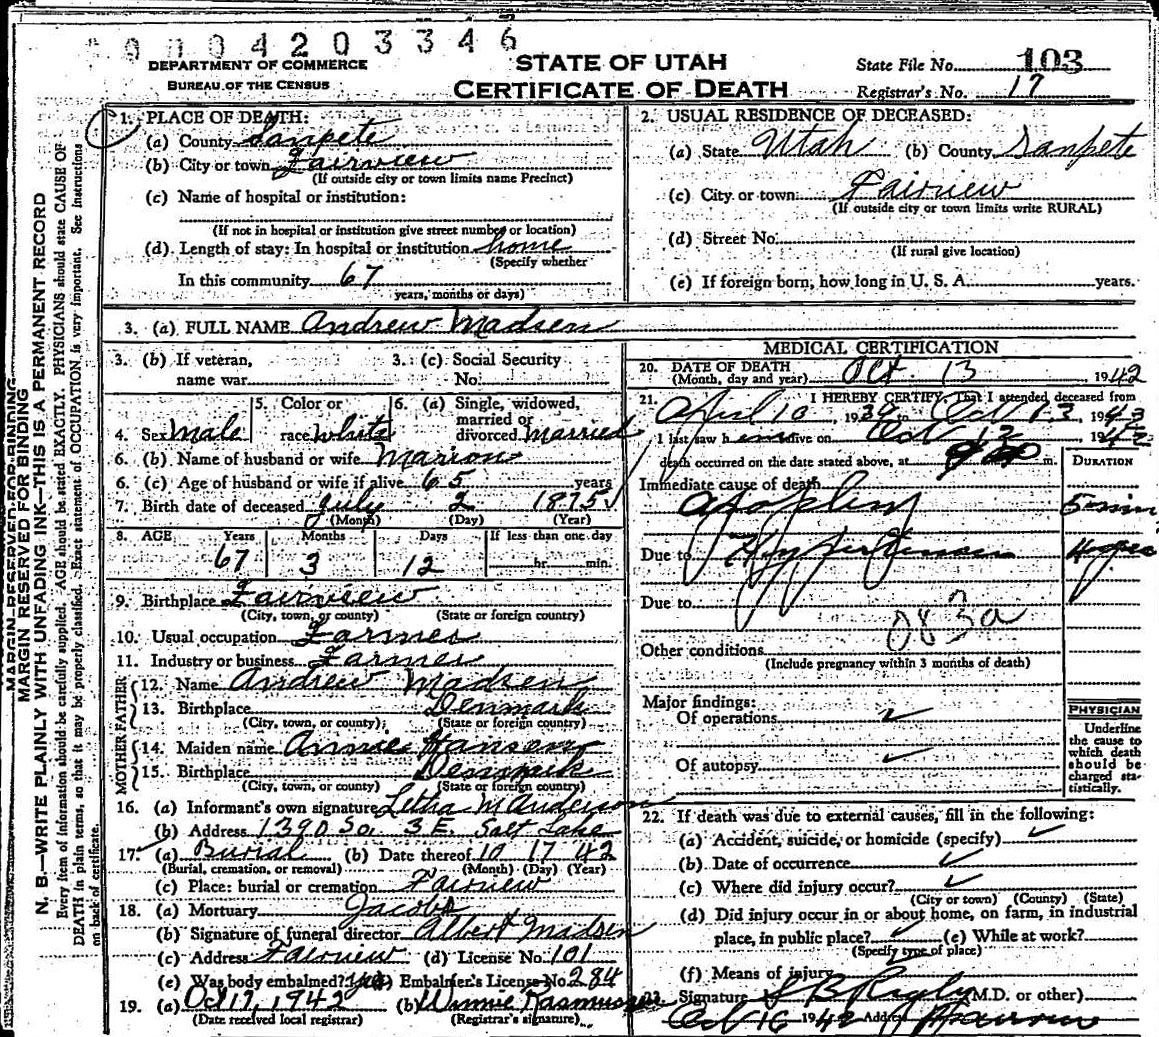 0 0 0 4 2 0 3 3 4 6
DEPARTMENT OF COMMERCE
BUREAU OF THE CENSUS
STATE OF UTAH
CERTIFICATE OF DEATH
State File No. 103
Registrar's No. 17
MARGIN RESERVED FOR BINDING
N. B.—WRITE PLAINLY WITH UNFADING INK—THIS IS A PERMANENT RECORD
Every item of information should be carefully supplied. AGE should be stated EXACTLY. PHYSICIANS should state CAUSE OF
DEATH in plain terms, so that it may be properly classified. Exact statement of OCCUPATION is very important. See Instructions
on back of certificate.
1. PLACE OF DEATH:
(a) County Sanpete
(b) City or town Fairview
(If outside city or town limits name Precinct)
(c) Name of hospital or institution:
(If not in hospital or institution give street number or location)
(d) Length of stay: In hospital or institution home
(Specify whether
In this community 67
years, months or days)
2. USUAL RESIDENCE OF DECEASED:
(a) State Utah (b) County Sanpete
(c) City or town Fairview
(If outside city or town limits write RURAL)
(d) Street No.
(If rural give location)
(e) If foreign born, how long in U. S. A. years.
3. (a) FULL NAME Andrew Madsen
3. (b) If veteran,
name war
3. (c) Social Security
No.
4. Sex Male
5. Color or
race white
6. (a) Single, widowed,
married or
divorced Married
6. (b) Name of husband or wife Marion
6. (c) Age of husband or wife if alive 65 years
7. Birth date of deceased July 2 1875
(Month) (Day) (Year)
8. AGE Years Months Days If less than one day
67 3 12 hr. min.
9. Birthplace Fairview
(City, town, or county) (State or foreign country)
10. Usual occupation Farmer
11. Industry or business Farmer
FATHER
12. Name Andrew Madsen
13. Birthplace Denmark
(City, town, or county) (State or foreign country)
MOTHER
14. Maiden name Annie Hansen
15. Birthplace Denmark
(City, town, or county) (State or foreign country)
16. (a) Informant's own signature Letha M Anderson
(b) Address 1390 So. 3 E. Salt Lake
17. (a) Burial (b) Date thereof 10 17 42
(Burial, cremation, or removal) (Month) (Day) (Year)
(c) Place: burial or cremation Fairview
18. (a) Mortuary Jacobs
(b) Signature of funeral director Albert Madsen
(c) Address Fairview (d) License No. 101
(e) Was body embalmed? yes Embalmer's License No. 284
19. (a) Oct 17, 1942 (b) Winnie Rasmussen
(Date received local registrar) (Registrar's signature)
MEDICAL CERTIFICATION
20. DATE OF DEATH
(Month, day and year) Oct. 13, 1942
21. I HEREBY CERTIFY, That I attended deceased from
April 10 1939 to Oct 13, 1943
I last saw him alive on Oct 13 1942
death occurred on the date stated above, at m.
DURATION
Immediate cause of death
Apoplexy 5 min
Due to Hypertension 4 yrs
Due to
083a
Other conditions
(Include pregnancy within 3 months of death)
Major findings:
Of operations
Of autopsy
PHYSICIAN
Underline
the cause to
which death
should be
charged sta-
tistically.
22. If death was due to external causes, fill in the following:
(a) Accident, suicide, or homicide (specify)
(b) Date of occurrence
(c) Where did injury occur?
(City or town) (County) (State)
(d) Did injury occur in or about home, on farm, in industrial
place, in public place? (e) While at work?
(Specify type of place)
(f) Means of injury
23. Signature S B Rigby (M.D. or other)
Oct 16 1942 Address Fairview